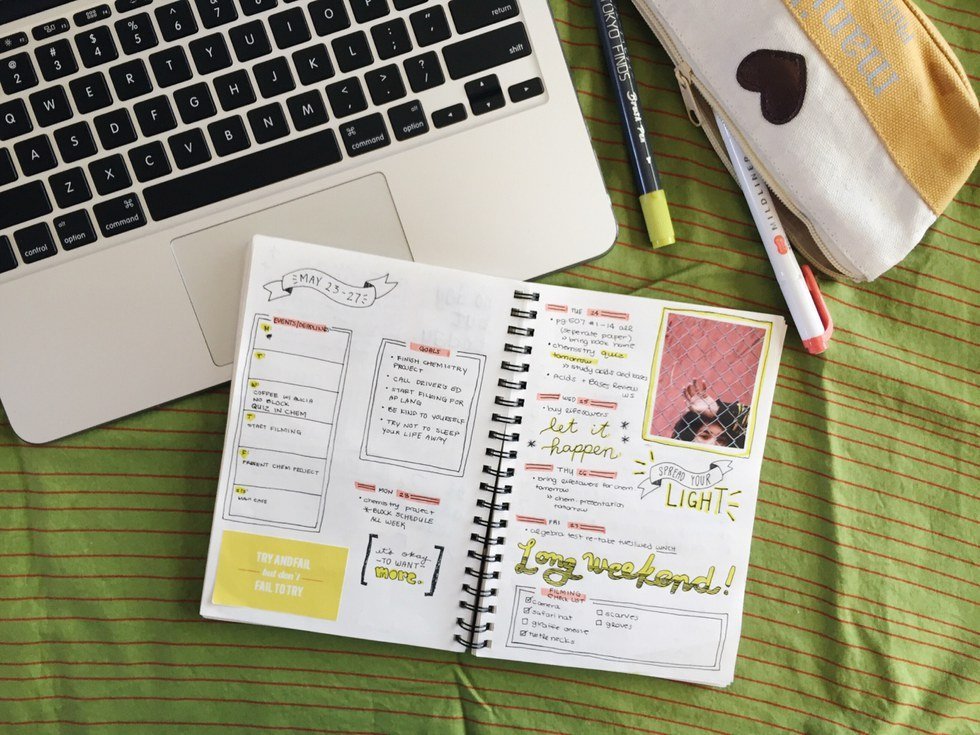 return
shift
command
option
@ 2
# 3
$ 4
% 5
^ 6
& 7
* 8
( 9
) 0
Q W E R T Y U I O P
A S D F G H J K L
Z X C V B N M
control
alt option
command
TOKYO FINDS
Brush Pen
MILDLINER
MAY 23-27
EVENTS/DEADLINES
M
T
W
COFFEE W/ ALICIA
NO BLOCK
QUIZ IN CHEM
T
START FILMING
F
PRESENT CHEM PROJECT
S/S
GOALS
• FINISH CHEMISTRY
PROJECT
• CALL DRIVER'S ED
• START FILMING FOR
AP LANG
• BE KIND TO YOURSELF
• TRY NOT TO SLEEP
YOUR LIFE AWAY
MON 23
• chemistry project
*-BLOCK SCHEDULE
ALL WEEK
it's okay
-TO WANT-
more.
TRY AND FAIL
but don't
FAIL TO TRY
TUE 24
• pg 607 #1-14 all
(seperate paper)
» bring book home
• chemistry quiz
tomorrow
» study acids and bases
• Acids + Bases Review
WS
WED 25
• buy lifesavers
* let it *
* happen *
THU 26
• bring lifesavers for chem
tomorrow
» chem presentation
tomorrow
FRI 27
• algebra test re-take tues/wed LUNCH
Long weekend!
SPREAD YOUR
LIGHT
FILMING
CHECKLIST
☑ camera
☑ safari hat
☐ giraffe onesie
☑ turtle necks
☐ scarves
☐ gloves